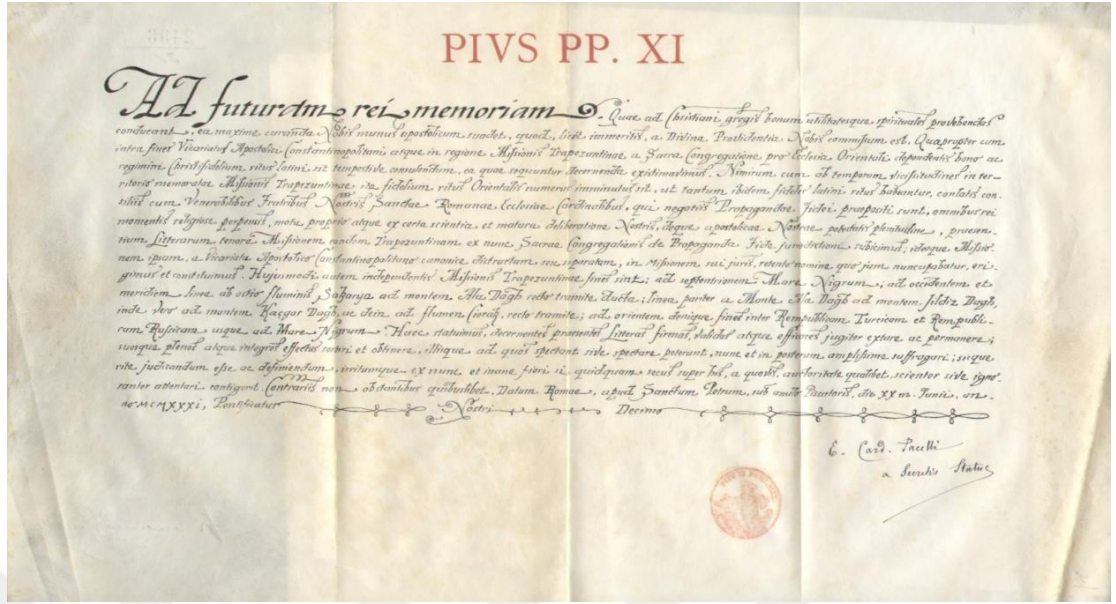 PIVS PP. XI
Ad futuram rei memoriam. Quae ad Christiani gregis bonum utilitatesque spirituales provehendas
conducant, ea maxime curanda Nobis munus apostolicum suadet, quod, licet immeritis, a Divina Providentia Nobis commissum est. Quapropter cum
intra fines Vicariatus Apostolici Constantinopolitani atque in regione Missionis Trapezuntinae a Sacra Congregatione pro Ecclesia Orientali dependentis bono ac
regimini Christifidelium ritus latini sit tempestive consulendum, ea quae sequuntur decernenda existimavimus. Nimirum cum ob temporum vicissitudines in ter-
ritorio memoratae Missionis Trapezuntinae ita fidelium ritus Orientalis numerus imminutus sit, ut tantum ibidem fideles latini ritus habeantur, conlatis con-
siliis cum Venerabilibus Fratribus Nostris Sanctae Romanae Ecclesiae Cardinalibus, qui negotiis Propagandae Fidei praepositi sunt, omnibus rei
momentis religiose perpensis, motu proprio atque ex certa scientia et matura deliberatione Nostris, deque apostolicae Nostrae potestatis plenitudine, praesen-
tium Litterarum tenore Missionem eamdem Trapezuntinam ex nunc Sacrae Congregationis de Propaganda Fide jurisdictioni subicimus; ideoque Missio-
nem ipsam, a Vicariatu Apostolico Constantinopolitano canonice distractam seu separatam, in Missionem sui juris, retento nomine quo jam nuncupabatur, eri-
gimus et constituimus. Hujusmodi autem independentis Missionis Trapezuntinae fines sint: ad septentrionem Mare Nigrum; ad occidentem et
meridiem linea ab ostio fluminis Sakarya ad montem Ala Dagh recto tramite ducta; linea pariter a Monte Ala Dagh ad montem Jildiz Dagh,
inde vero ad montem Kaçgar Dagh, ac dein ad flumen Ciorah recto tramite; ad orientem denique fines inter Rempublicam Turcicam et Rempubli-
cam Russicam usque ad Mare Nigrum. Haec statuimus, decernentes praesentes Litteras firmas, validas atque efficaces jugiter extare ac permanere;
suosque plenos atque integros effectus sortiri et obtinere, illisque ad quos spectant sive spectare poterunt, nunc et in posterum amplissime suffragari; sicque
rite judicandum esse ac definiendum, irritumque ex nunc et inane fieri si quidquam secus super his, a quovis, auctoritate qualibet, scienter sive igno-
ranter attentari contigerit. Contrariis non obstantibus quibuslibet. Datum Romae, apud Sanctum Petrum, sub anulo Piscatoris, die XX m. Junii, an-
no MCMXXXI, Pontificatus Nostri Decimo
E. Card. Pacelli
a Secretis Status